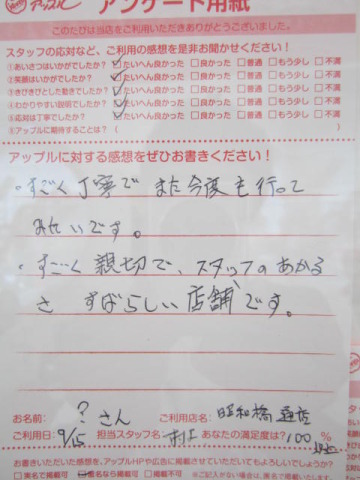 アップル アンケート用紙
このたびは当店をご利用いただきありがとうございました。
スタッフの応対など、ご利用の感想を是非お聞かせください!
①あいさつはいかがでしたか? ☑たいへん良かった □良かった □普通 □もう少し □不満
②笑顔はいかがでしたか? ☑たいへん良かった □良かった □普通 □もう少し □不満
③きびきびとした動きでしたか? ☑たいへん良かった □良かった □普通 □もう少し □不満
④わかりやすい説明でしたか? ☑たいへん良かった □良かった □普通 □もう少し □不満
⑤応対は丁寧でしたか? ☑たいへん良かった □良かった □普通 □もう少し □不満
⑥アップルに期待することは? (
アップルに対する感想をぜひお書きください!
・すごく丁寧でまた今度も行って
みたいです。
・すごく親切で、スタッフのあかる
さ すばらしい店舗です。
お名前: ? さん ご利用店名: 昭和橋通店
ご利用日: 9/15 担当スタッフ名: 村上 あなたの満足度は? 100 %
お書きいただいた感想を、アップルHPや広告に掲載させていただいてもよろしいでしょうか?
□実名で掲載可 ☑匿名なら掲載可 □掲載不可 ※ご記入がない場合は、匿名で掲載